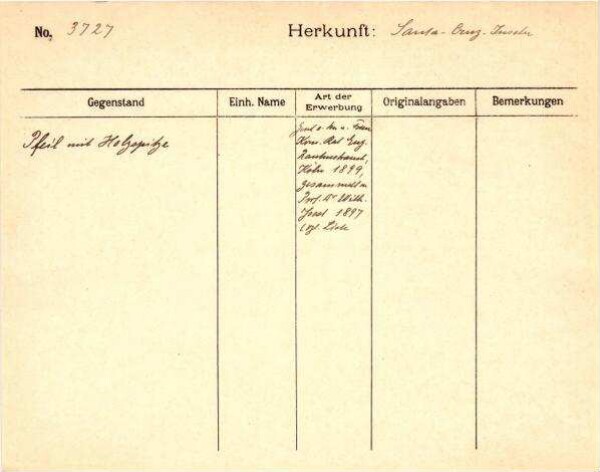 No. 3727
Herkunft: Santa-Cruz-Inseln
Gegenstand
Einh. Name
Art der
Erwerbung
Originalangaben
Bemerkungen
Pfeil mit Holzspitze
Kom. Rat Eug.
Rautenstrauch,
Köln 1899,
gesammelt v.
Prof. Dr Wilh.
Joest 1897
Liste